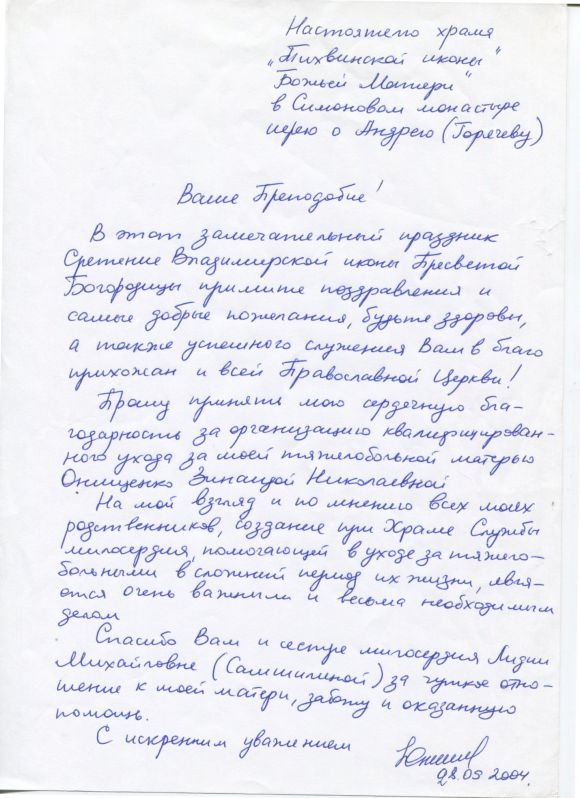 Настоятелю храма
„Тихвинской иконы"
Божьей Матери"
в Симоновом монастыре
иерею о Андрею (Горячеву)
Ваше Преподобие!
В этот замечательный праздник
Сретение Владимирской иконы Пресветой
Богородицы примите поздравления и
самые добрые пожелания, будьте здоровы,
а также успешного служения Вам в благо
прихожан и всей Православной Церкви!
Прошу принять мою сердечную бла-
годарность за организацию квалифицирован-
ного ухода за моей тяжелобольной матерью
Онищенко Зинаидой Николаевной
На мой взгляд и по мнению всех моих
родственников, создание при Храме Службы
милосердия, помогающей в уходе за тяжело-
больными в сложний период их жизни, явля-
ются очень важным и весьма необходимым
делом
Спасибо Вам и сестре милосердия Лидии
Михайловне (Самшиной) за чуткое отно-
шение к моей матери, заботу и оказанную
помощь.
С искренним уважением
2004.